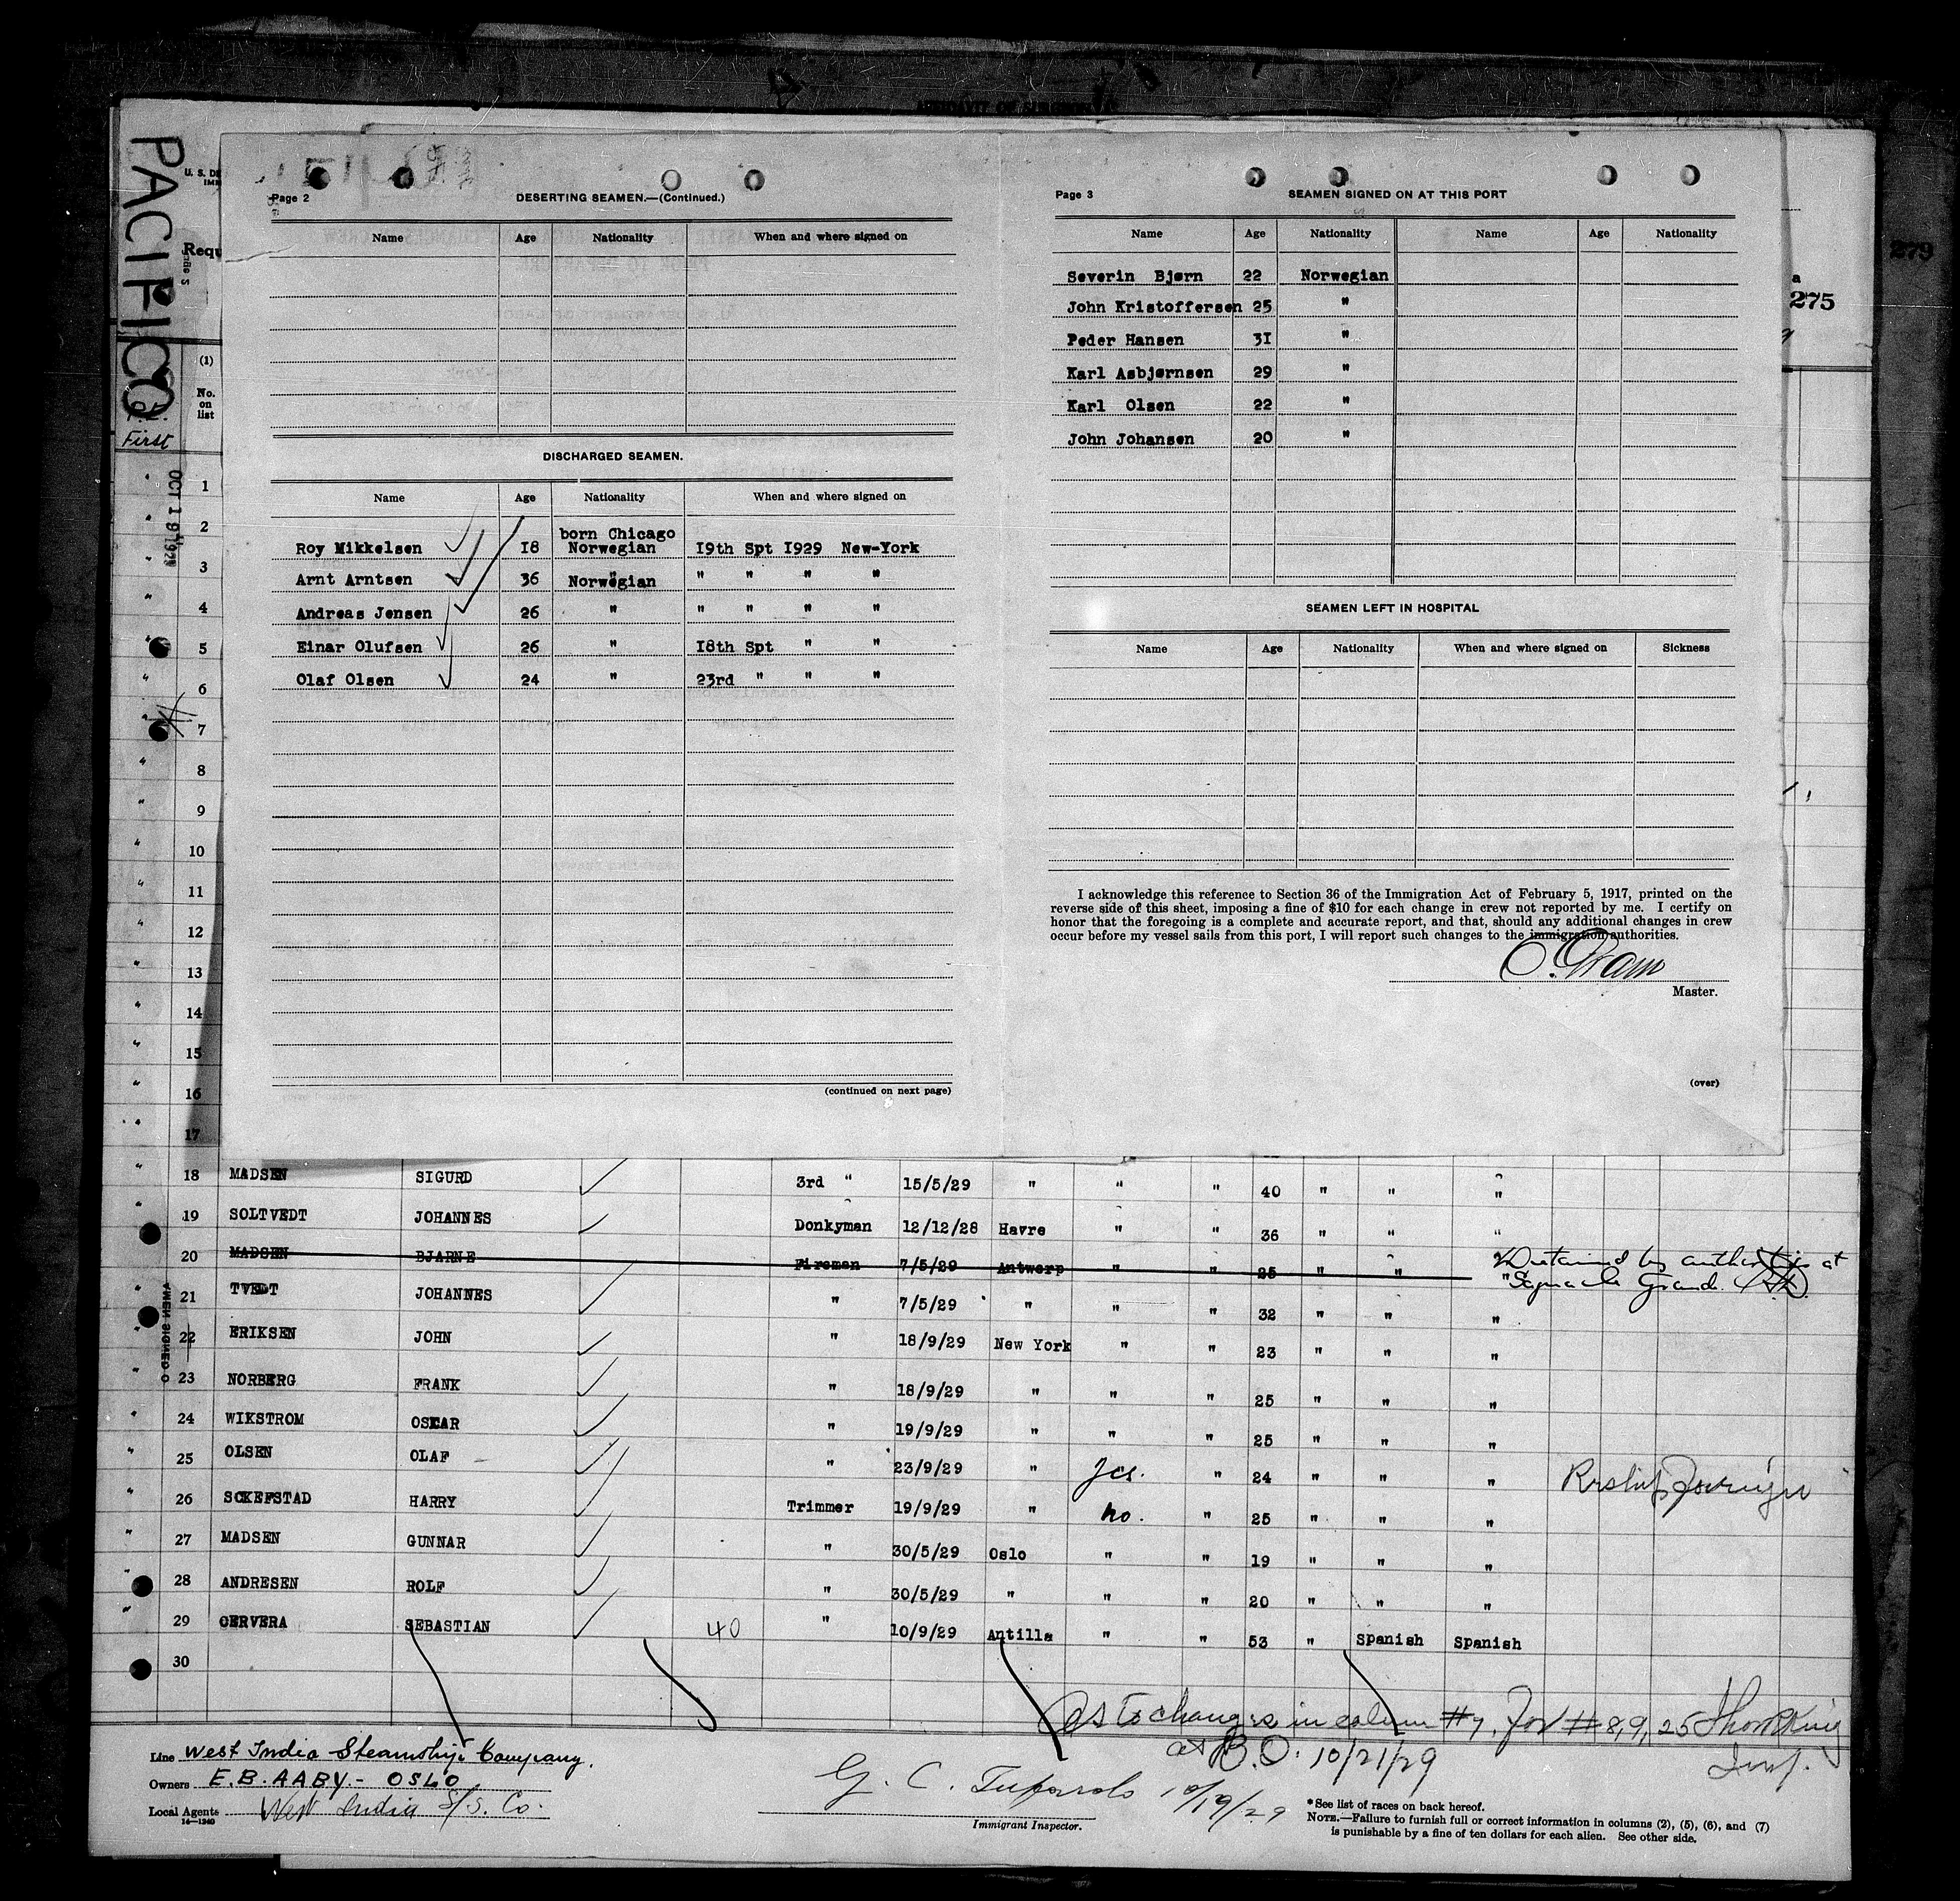 PACIFICO
First
OCT 19 1929
U. S. DE
Requ
(1)
No.
on
list
275
279
Page 2 DESERTING SEAMEN.—(Continued.)
Name Age Nationality When and where signed on
DISCHARGED SEAMEN.
Name Age Nationality When and where signed on
born Chicago
Roy Mikkelsen 18 Norwegian 19th Spt 1929 New-York
Arnt Arntsen 36 Norwegian " " " "
Andreas Jensen 26 " " " " "
Einar Olufsen 26 " 18th Spt " "
Olaf Olsen 24 " 23rd " " "
(continued on next page)
Page 3 SEAMEN SIGNED ON AT THIS PORT
Name Age Nationality Name Age Nationality
Severin Bjørn 22 Norwegian
John Kristoffersen 25 "
Peder Hansen 31 "
Karl Asbjørnsen 29 "
Karl Olsen 22 "
John Johansen 20 "
SEAMEN LEFT IN HOSPITAL
Name Age Nationality When and where signed on Sickness
I acknowledge this reference to Section 36 of the Immigration Act of February 5, 1917, printed on the
reverse side of this sheet, imposing a fine of $10 for each change in crew not reported by me. I certify on
honor that the foregoing is a complete and accurate report, and that, should any additional changes in crew
occur before my vessel sails from this port, I will report such changes to the immigration authorities.
Master.
(over)
1
2
3
4
5
6
7
8
9
10
11
12
13
14
15
16
17
18 MADSEN SIGURD 3rd " 15/5/29 " " " 40 " " "
19 SOLTVEDT JOHANNES Donkyman 12/12/28 Havre " " 36 " " "
20 MADSEN BJARNE Fireman 7/5/29 Antwerp " " 25 " " " Detained by authorities at
"Sagua la Grand.
21 TVEDT JOHANNES " 7/5/29 " " " 32 " " "
22 ERIKSEN JOHN " 18/9/29 New York " " 23 " " "
23 NORBERG FRANK " 18/9/29 " " " 25 " " "
24 WIKSTROM OSKAR " 19/9/29 " " " 25 " " "
25 OLSEN OLAF " 23/9/29 " yes. " 24 " " "
26 SCKEFSTAD HARRY Trimmer 19/9/29 " no. " 25 " " "
27 MADSEN GUNNAR " 30/5/29 Oslo " " 19 " " "
28 ANDRESEN ROLF " 30/5/29 " " " 20 " " "
29 CERVERA SEBASTIAN 40 " 10/9/29 Antilla " " 53 " Spanish Spanish
30
As to changes in column #7, for #8,9,25
at B.O. 10/21/29 Insp.
Line West India Steamship Company.
Owners E.B. AABY.- OSLO
Local Agents West India S/S. Co.
16—1240
G. C. 10/19/29
Immigrant Inspector.
*See list of races on back hereof.
NOTE.—Failure to furnish full or correct information in columns (2), (5), (6), and (7)
is punishable by a fine of ten dollars for each alien. See other side.